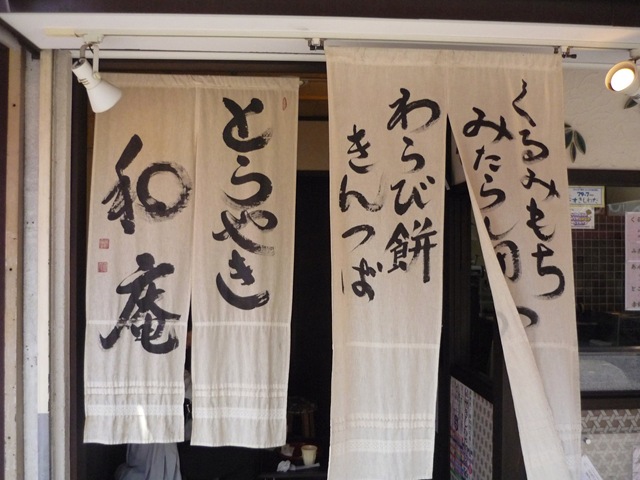 くるみもち
みたらし団
わらび餅
きんつば
とらやき
和庵